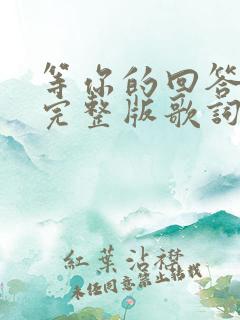 等你的回答
完整版歌词
紅葉沾襟
未经同意禁止转载